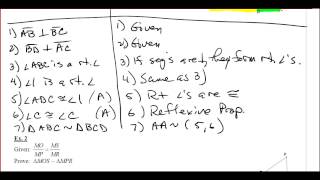 1) AB ⊥ BC
1) Given
2) BD ⊥ AC
2) Given
3) ∠ABC is a rt. ∠
3) If seg's are ⊥, they form rt. ∠'s.
4) ∠1 is a rt. ∠
4) Same as 3)
5) ∠ADC ≅ ∠1 (A)
5) Rt ∠'s are ≅
6) ∠C ≅ ∠C (A)
6) Reflexive Prop.
7) △ABC ~ △BCD
7) AA~ (5,6)
Ex. 2
Given: MO/MP = MS/MR
Prove: △MOS ~ △MPR